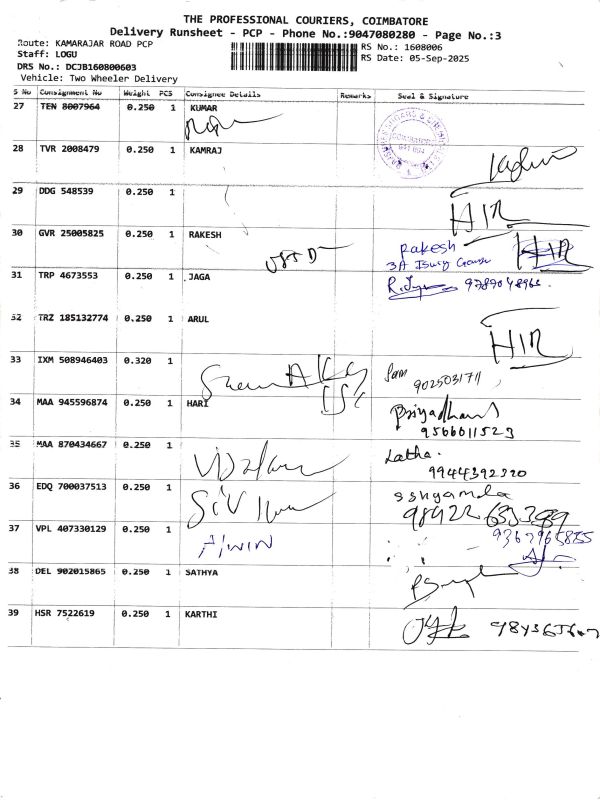 THE PROFESSIONAL COURIERS, COIMBATORE
Delivery Runsheet - PCP - Phone No.:9047080280 - Page No.:3
Route: KAMARAJAR ROAD PCP
Staff: LOGU
DRS No.: DCJB160800603
Vehicle: Two Wheeler Delivery
RS No.: 1608006
RS Date: 05-Sep-2025
S No Consignment No Weight PCS Consignee Details Remarks Seal & Signature
27 TEN 8007964 0.250 1 KUMAR
28 TVR 2008479 0.250 1 KAMRAJ
29 DDG 548539 0.250 1
HIR
30 GVR 25005825 0.250 1 RAKESH
Rakesh
HIR
3A
31 TRP 4673553 0.250 1 JAGA
32 TRZ 185132774 0.250 1 ARUL
HIR
33 IXM 508946403 0.320 1
9025031711
34 MAA 945596874 0.250 1 HARI
9566011523
35 MAA 870434667 0.250 1
Latha.
9944392320
36 EDQ 700037513 0.250 1
SIV
sshyamala
37 VPL 407330129 0.250 1
AlWIN
38 DEL 902015865 0.250 1 SATHYA
39 HSR 7522619 0.250 1 KARTHI